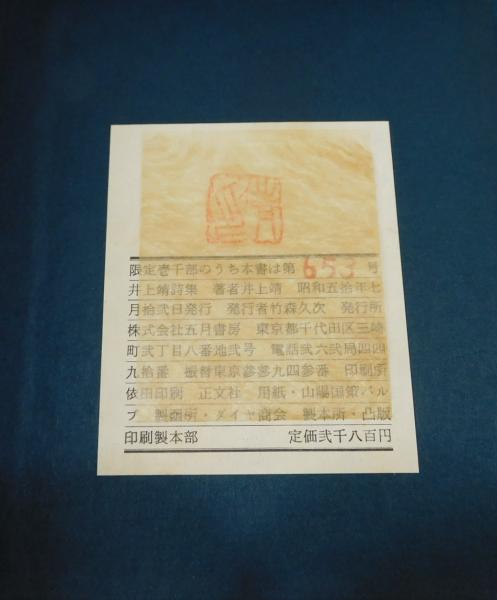 靖
限定壱千部のうち本書は第 653 号
井上靖詩集　著者井上靖　昭和五拾年七
月拾弐日発行　発行者竹森久次　発行所
株式会社五月書房　東京都千代田区三崎
町弐丁目八番地弐号　電話弐六弐局四四
九拾番　振替東京参参九四参番　印刷所
依田印刷　正文社　用紙・山陽国策パル
プ　製函所・メイヤ商会　製本所・凸版
印刷製本部　定価弐千八百円